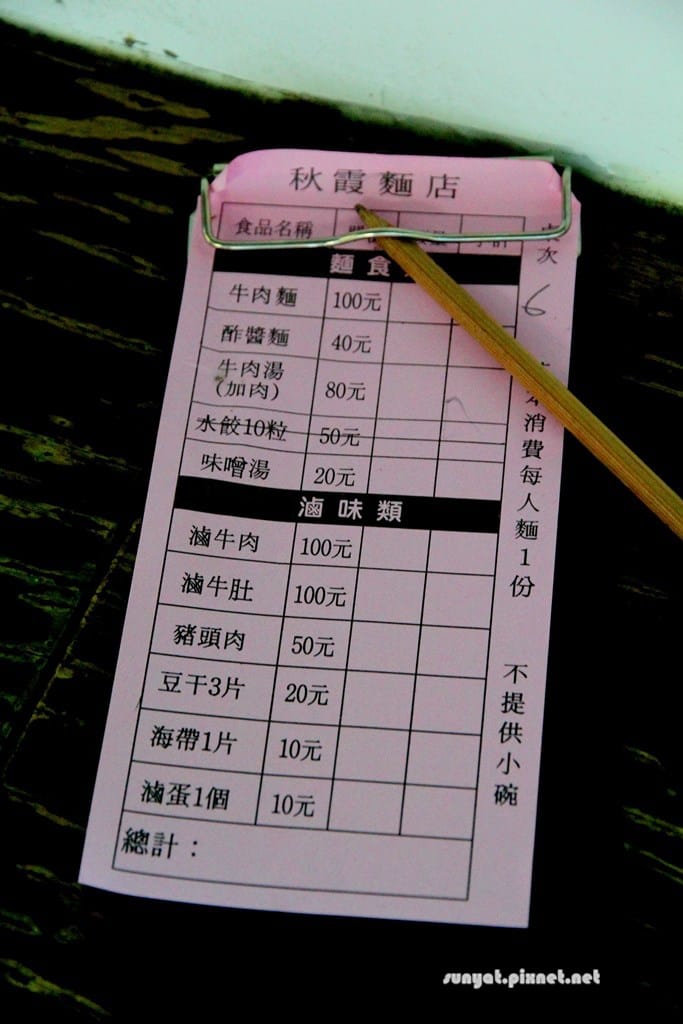 秋霞麵店
食品名稱
麵食
牛肉麵 100元
酢醬麵 40元
牛肉湯
(加肉) 80元
水餃10粒 50元
味噌湯 20元
滷味類
滷牛肉 100元
滷牛肚 100元
豬頭肉 50元
豆干3片 20元
海帶1片 10元
滷蛋1個 10元
總計：
次
6
消費每人麵1份
不提供小碗
sunyat.pixnet.net